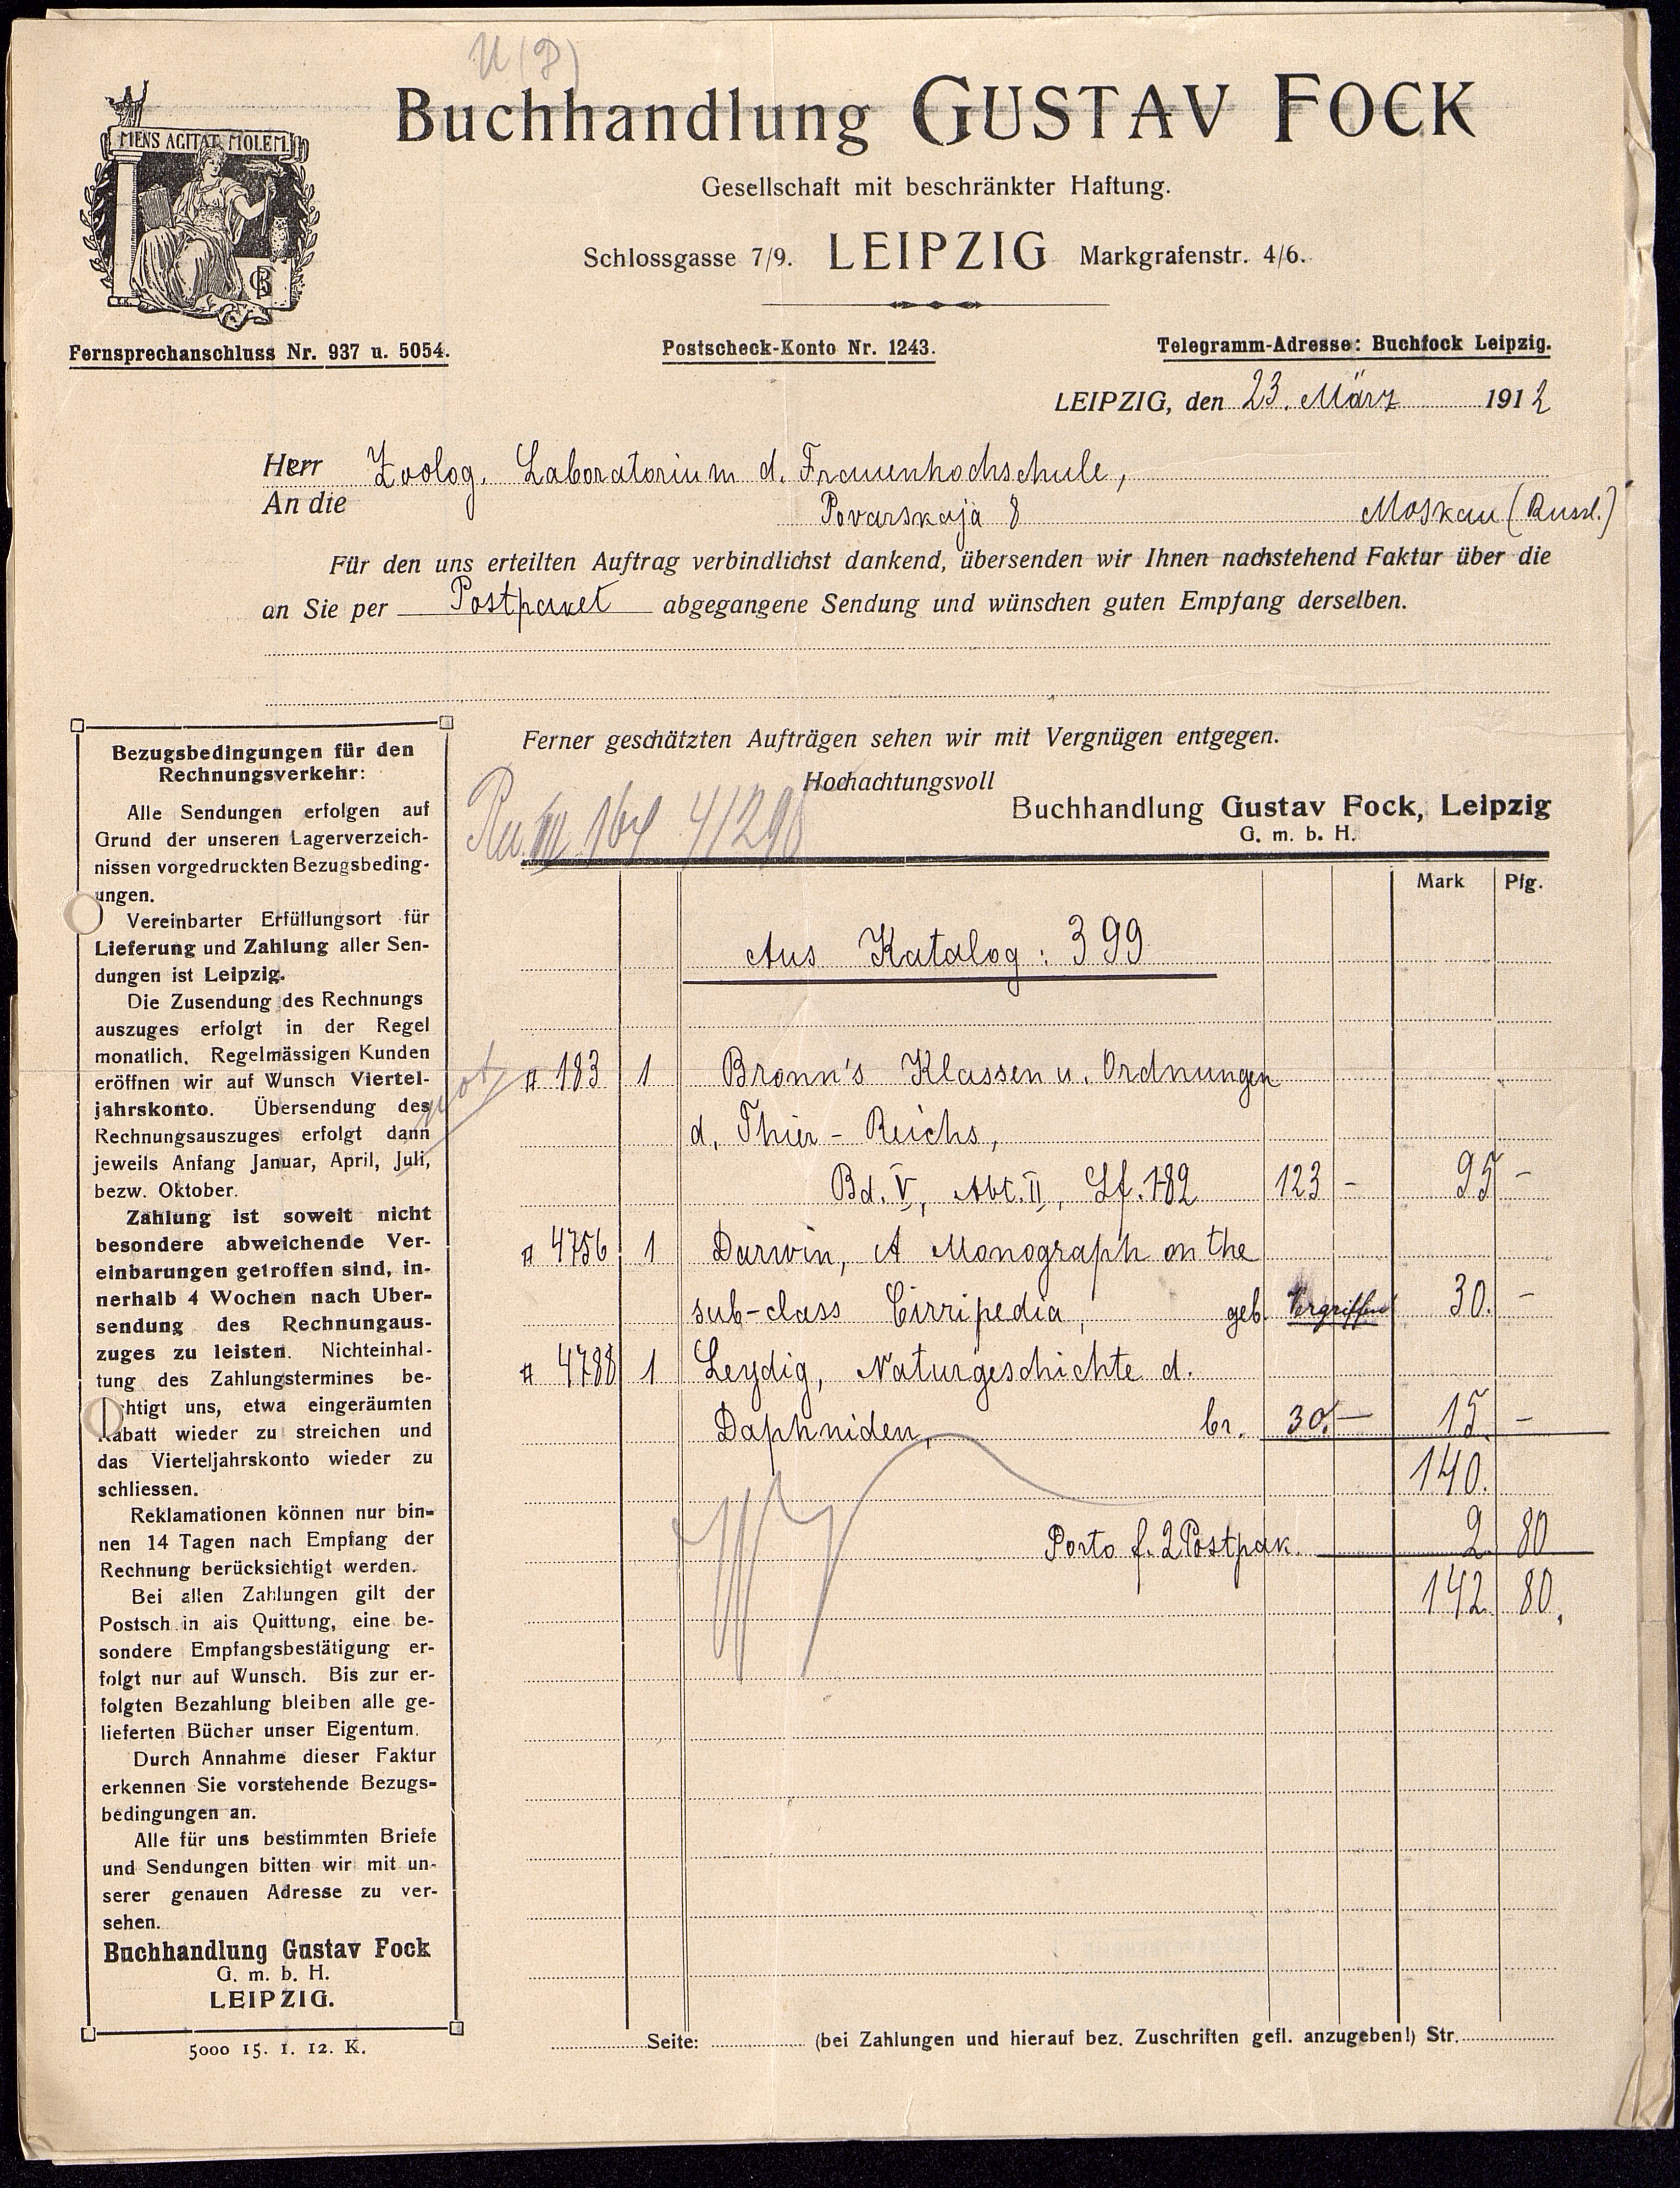 MENS AGITAT MOLEM
Buchhandlung GUSTAV FOCK
Gesellschaft mit beschränkter Haftung.
Schlossgasse 7/9. LEIPZIG Markgrafenstr. 4/6.
Fernsprechanschluss Nr. 937 u. 5054. Postscheck-Konto Nr. 1243. Telegramm-Adresse: Buchfock Leipzig.
LEIPZIG, den 23. März 1912
Herr Zoolog. Laboratorium d. Frauenhochschule,
An die Povarskaja 8 Moskau (Russl.)
Für den uns erteilten Auftrag verbindlichst dankend, übersenden wir Ihnen nachstehend Faktur über die
an Sie per Postpaket abgegangene Sendung und wünschen guten Empfang derselben.
Ferner geschätzten Aufträgen sehen wir mit Vergnügen entgegen.
Hochachtungsvoll
Buchhandlung Gustav Fock, Leipzig
G. m. b. H.
Bezugsbedingungen für den
Rechnungsverkehr:
Alle Sendungen erfolgen auf
Grund der unseren Lagerverzeich-
nissen vorgedruckten Bezugsbeding-
ungen.
Vereinbarter Erfüllungsort für
Lieferung und Zahlung aller Sen-
dungen ist Leipzig.
Die Zusendung des Rechnungs
auszuges erfolgt in der Regel
monatlich. Regelmässigen Kunden
eröffnen wir auf Wunsch Viertel-
jahrskonto. Übersendung des
Rechnungsauszuges erfolgt dann
jeweils Anfang Januar, April, Juli,
bezw. Oktober.
Zahlung ist soweit nicht
besondere abweichende Ver-
einbarungen getroffen sind, in-
nerhalb 4 Wochen nach Uber-
sendung des Rechnungaus-
zuges zu leisten. Nichteinhal-
tung des Zahlungstermines be-
htigt uns, etwa eingeräumten
Rabatt wieder zu streichen und
das Vierteljahrskonto wieder zu
schliessen.
Reklamationen können nur bin-
nen 14 Tagen nach Empfang der
Rechnung berücksichtigt werden.
Bei allen Zahlungen gilt der
Postsch in als Quittung, eine be-
sondere Empfangsbestätigung er-
folgt nur auf Wunsch. Bis zur er-
folgten Bezahlung bleiben alle ge-
lieferten Bücher unser Eigentum.
Durch Annahme dieser Faktur
erkennen Sie vorstehende Bezugs-
bedingungen an.
Alle für uns bestimmten Briefe
und Sendungen bitten wir mit un-
serer genauen Adresse zu ver-
sehen.
Buchhandlung Gustav Fock
G. m. b. H.
LEIPZIG.
5000 15. 1. 12. K.
Mark Pfg.
Aus Katalog: 399
# 183 1 Bronn's Klassen u. Ordnungen
d. Thier-Reichs,
Bd. V, Abt. II, Lf. 1-82 123 - 95 -
# 4756 1 Darwin, A Monograph on the
sub-class Cirripedia, geb. Vergriffen 30. -
# 4788 1 Leydig, Naturgeschichte d.
Daphniden, br. 30. - 15. -
140.
Porto f. 2 Postpak. 2 80
142. 80.
Seite: (bei Zahlungen und hierauf bez. Zuschriften gefl. anzugeben!) Str.